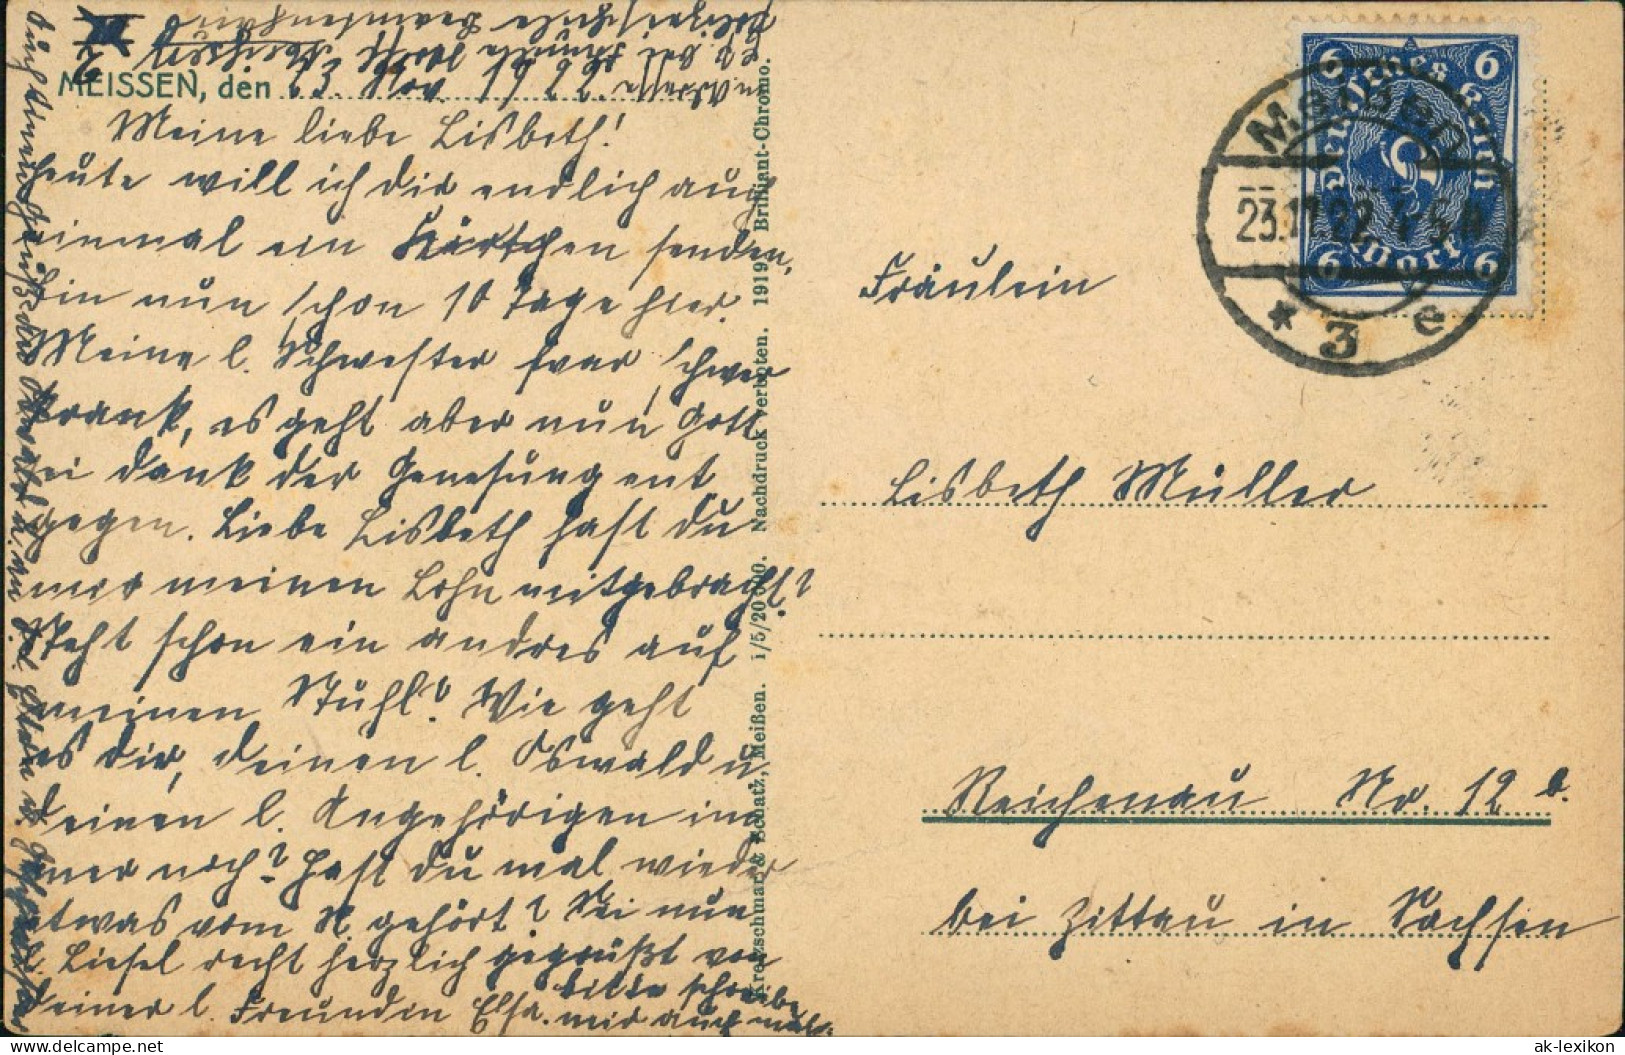 MEISSEN, den 23. Nov. 1922.
Meine liebe Lisbeth!
Heute will ich dir endlich auch
einmal ein Kärtchen senden,
bin nun schon 10 Tage hier.
Meine l. Schwester war schwer
krank, es geht aber nun Gott
sei dank der Genesung ent
gegen. Liebe Lisbeth hast du
mir meinen Lohn mitgebracht?
Steht schon ein andres auf
meinen Stuhl? Wie geht
es dir, deinen l. Oswald u.
deinen l. Angehörigen im
mer noch? Hast du mal wieder
etwas vom K. gehört? Sei nun
l. Liesel recht herzlich gegrüßt von
deiner l. Freundin Elsa. bitte schreibe
mir auch mal.
Kretzschmar & Schatz, Meißen. i/5/20 000. Nachdruck verboten. 1919. Brilliant-Chromo.
Deutsches Reich
6 6
6 Mark 6
Meissen
23.11.22. 4-5 N
* 3 e
Fräulein
Lisbeth Müller
Reichenau No. 12 b.
bei Zittau in Sachsen
ak-lexikon